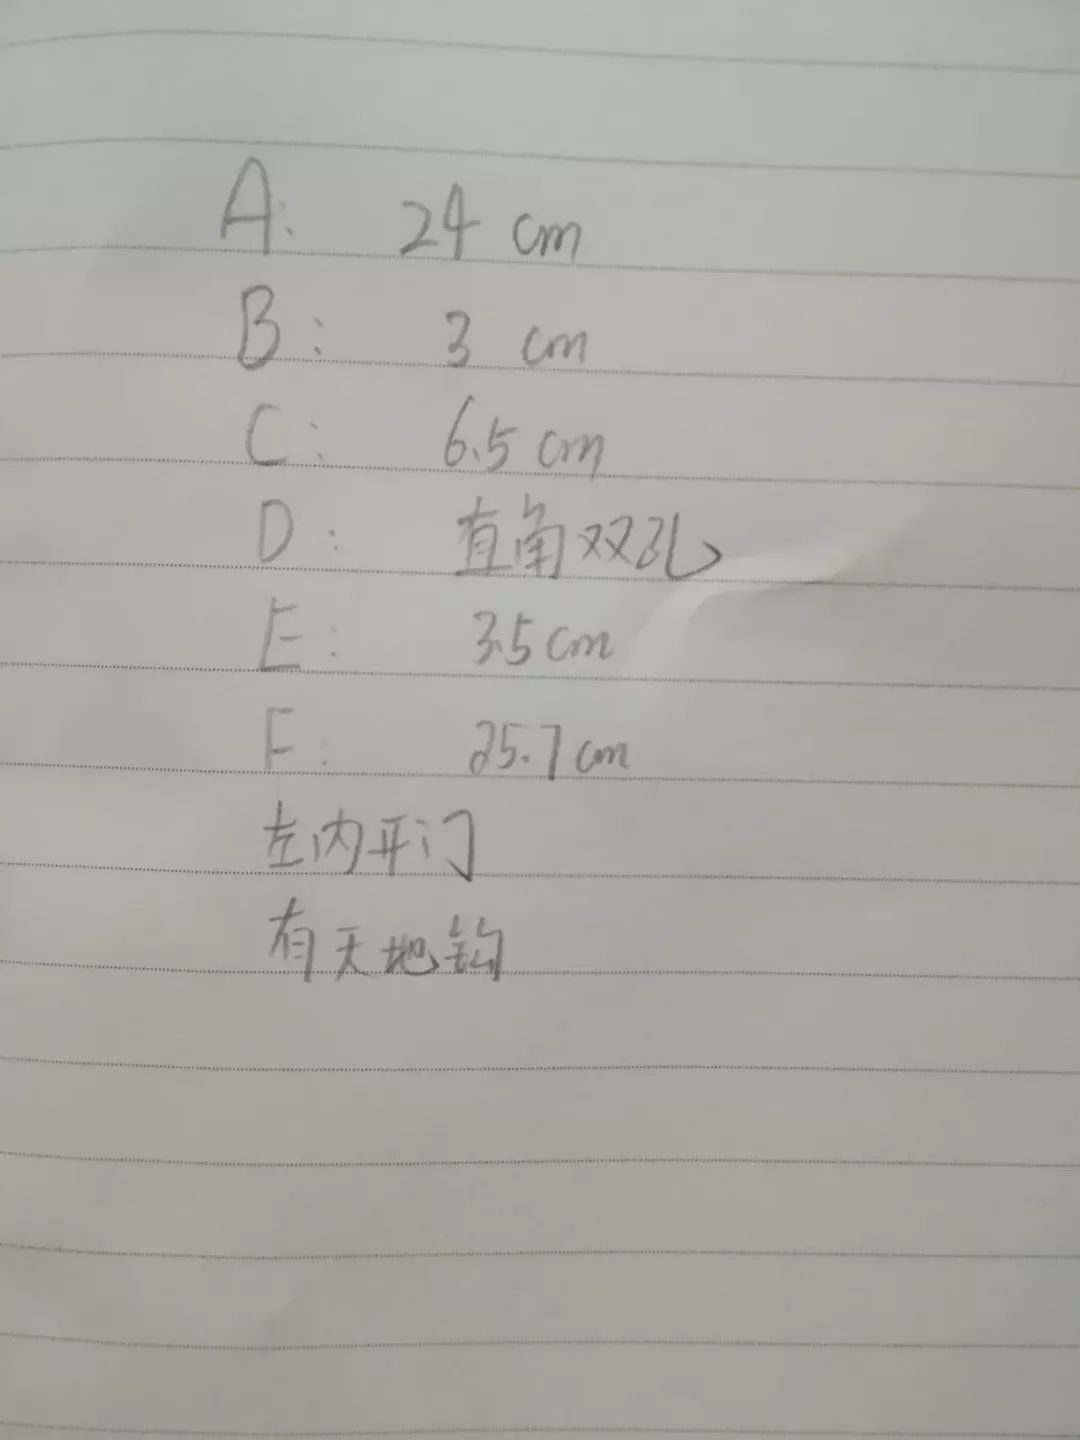 A: 24 cm
B: 3 cm
C: 6.5 cm
D: 直角双孔
E: 3.5 cm
F: 25.7 cm
左内开门
有天地钩